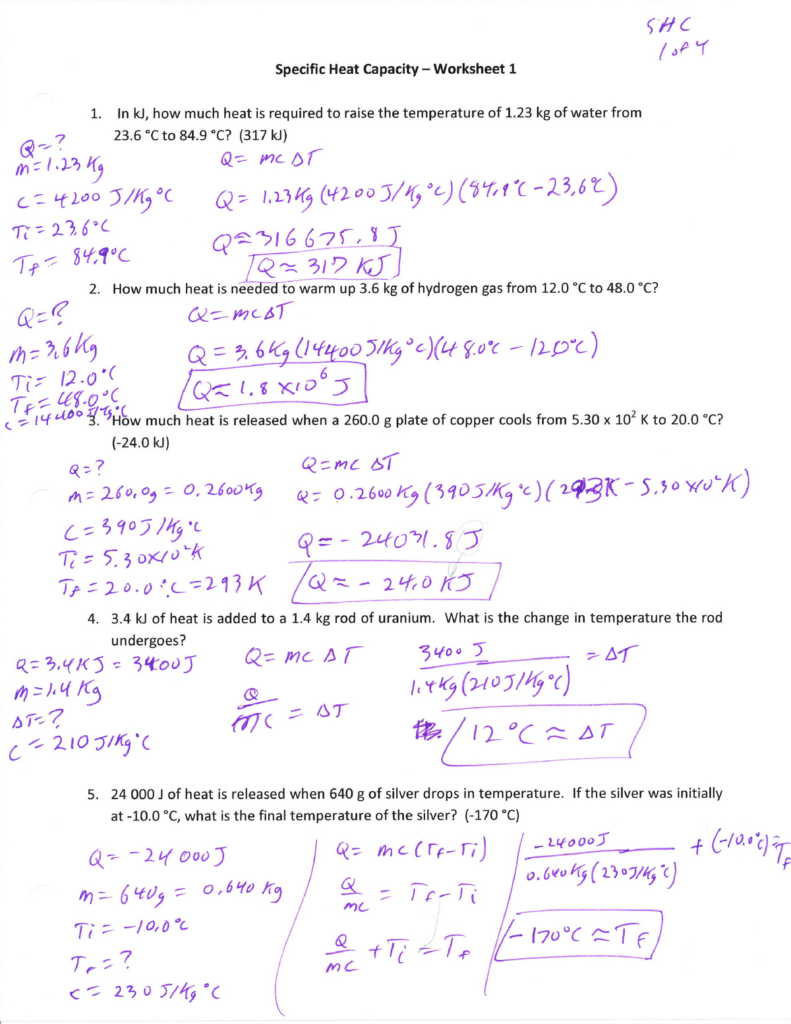 SHC
1 of 4
Specific Heat Capacity – Worksheet 1
1. In kJ, how much heat is required to raise the temperature of 1.23 kg of water from
23.6 °C to 84.9 °C? (317 kJ)
Q=?
m=1.23 Kg
c=4200 J/Kg°C
Ti=23.6°C
Tf=84.9°C
Q=mcΔT
Q=1.23Kg(4200J/Kg°C)(84.9°C-23.6°C)
Q=316675.8J
Q≈317 KJ
2. How much heat is needed to warm up 3.6 kg of hydrogen gas from 12.0 °C to 48.0 °C?
Q=?
m=3.6Kg
Ti=12.0°C
Tf=48.0°C
c=14400J/Kg°C
Q=mcΔT
Q=3.6Kg(14400J/Kg°C)(48.0°C-12.0°C)
Q≈1.8×10⁶J
3. How much heat is released when a 260.0 g plate of copper cools from 5.30 x 10² K to 20.0 °C?
(-24.0 kJ)
Q=?
m=260.0g=0.2600Kg
c=390J/Kg°C
Ti=5.30×10²K
Tf=20.0°C=293K
Q=mcΔT
Q=0.2600Kg(390J/Kg°C)(293K-5.30×10²K)
Q=-24031.8J
Q≈-24.0KJ
4. 3.4 kJ of heat is added to a 1.4 kg rod of uranium. What is the change in temperature the rod
undergoes?
Q=3.4KJ=3400J
m=1.4Kg
ΔT=?
c=210J/Kg°C
Q=mcΔT
Q/mc=ΔT
3400J/1.4Kg(210J/Kg°C)=ΔT
12°C≈ΔT
5. 24 000 J of heat is released when 640 g of silver drops in temperature. If the silver was initially
at -10.0 °C, what is the final temperature of the silver? (-170 °C)
Q=-24000J
m=640g=0.640Kg
Ti=-10.0°C
Tf=?
c=230J/Kg°C
Q=mc(Tf-Ti)
Q/mc=Tf-Ti
Q/mc+Ti=Tf
-24000J/0.640Kg(230J/Kg°C)+(-10.0°C)=Tf
-170°C≈Tf